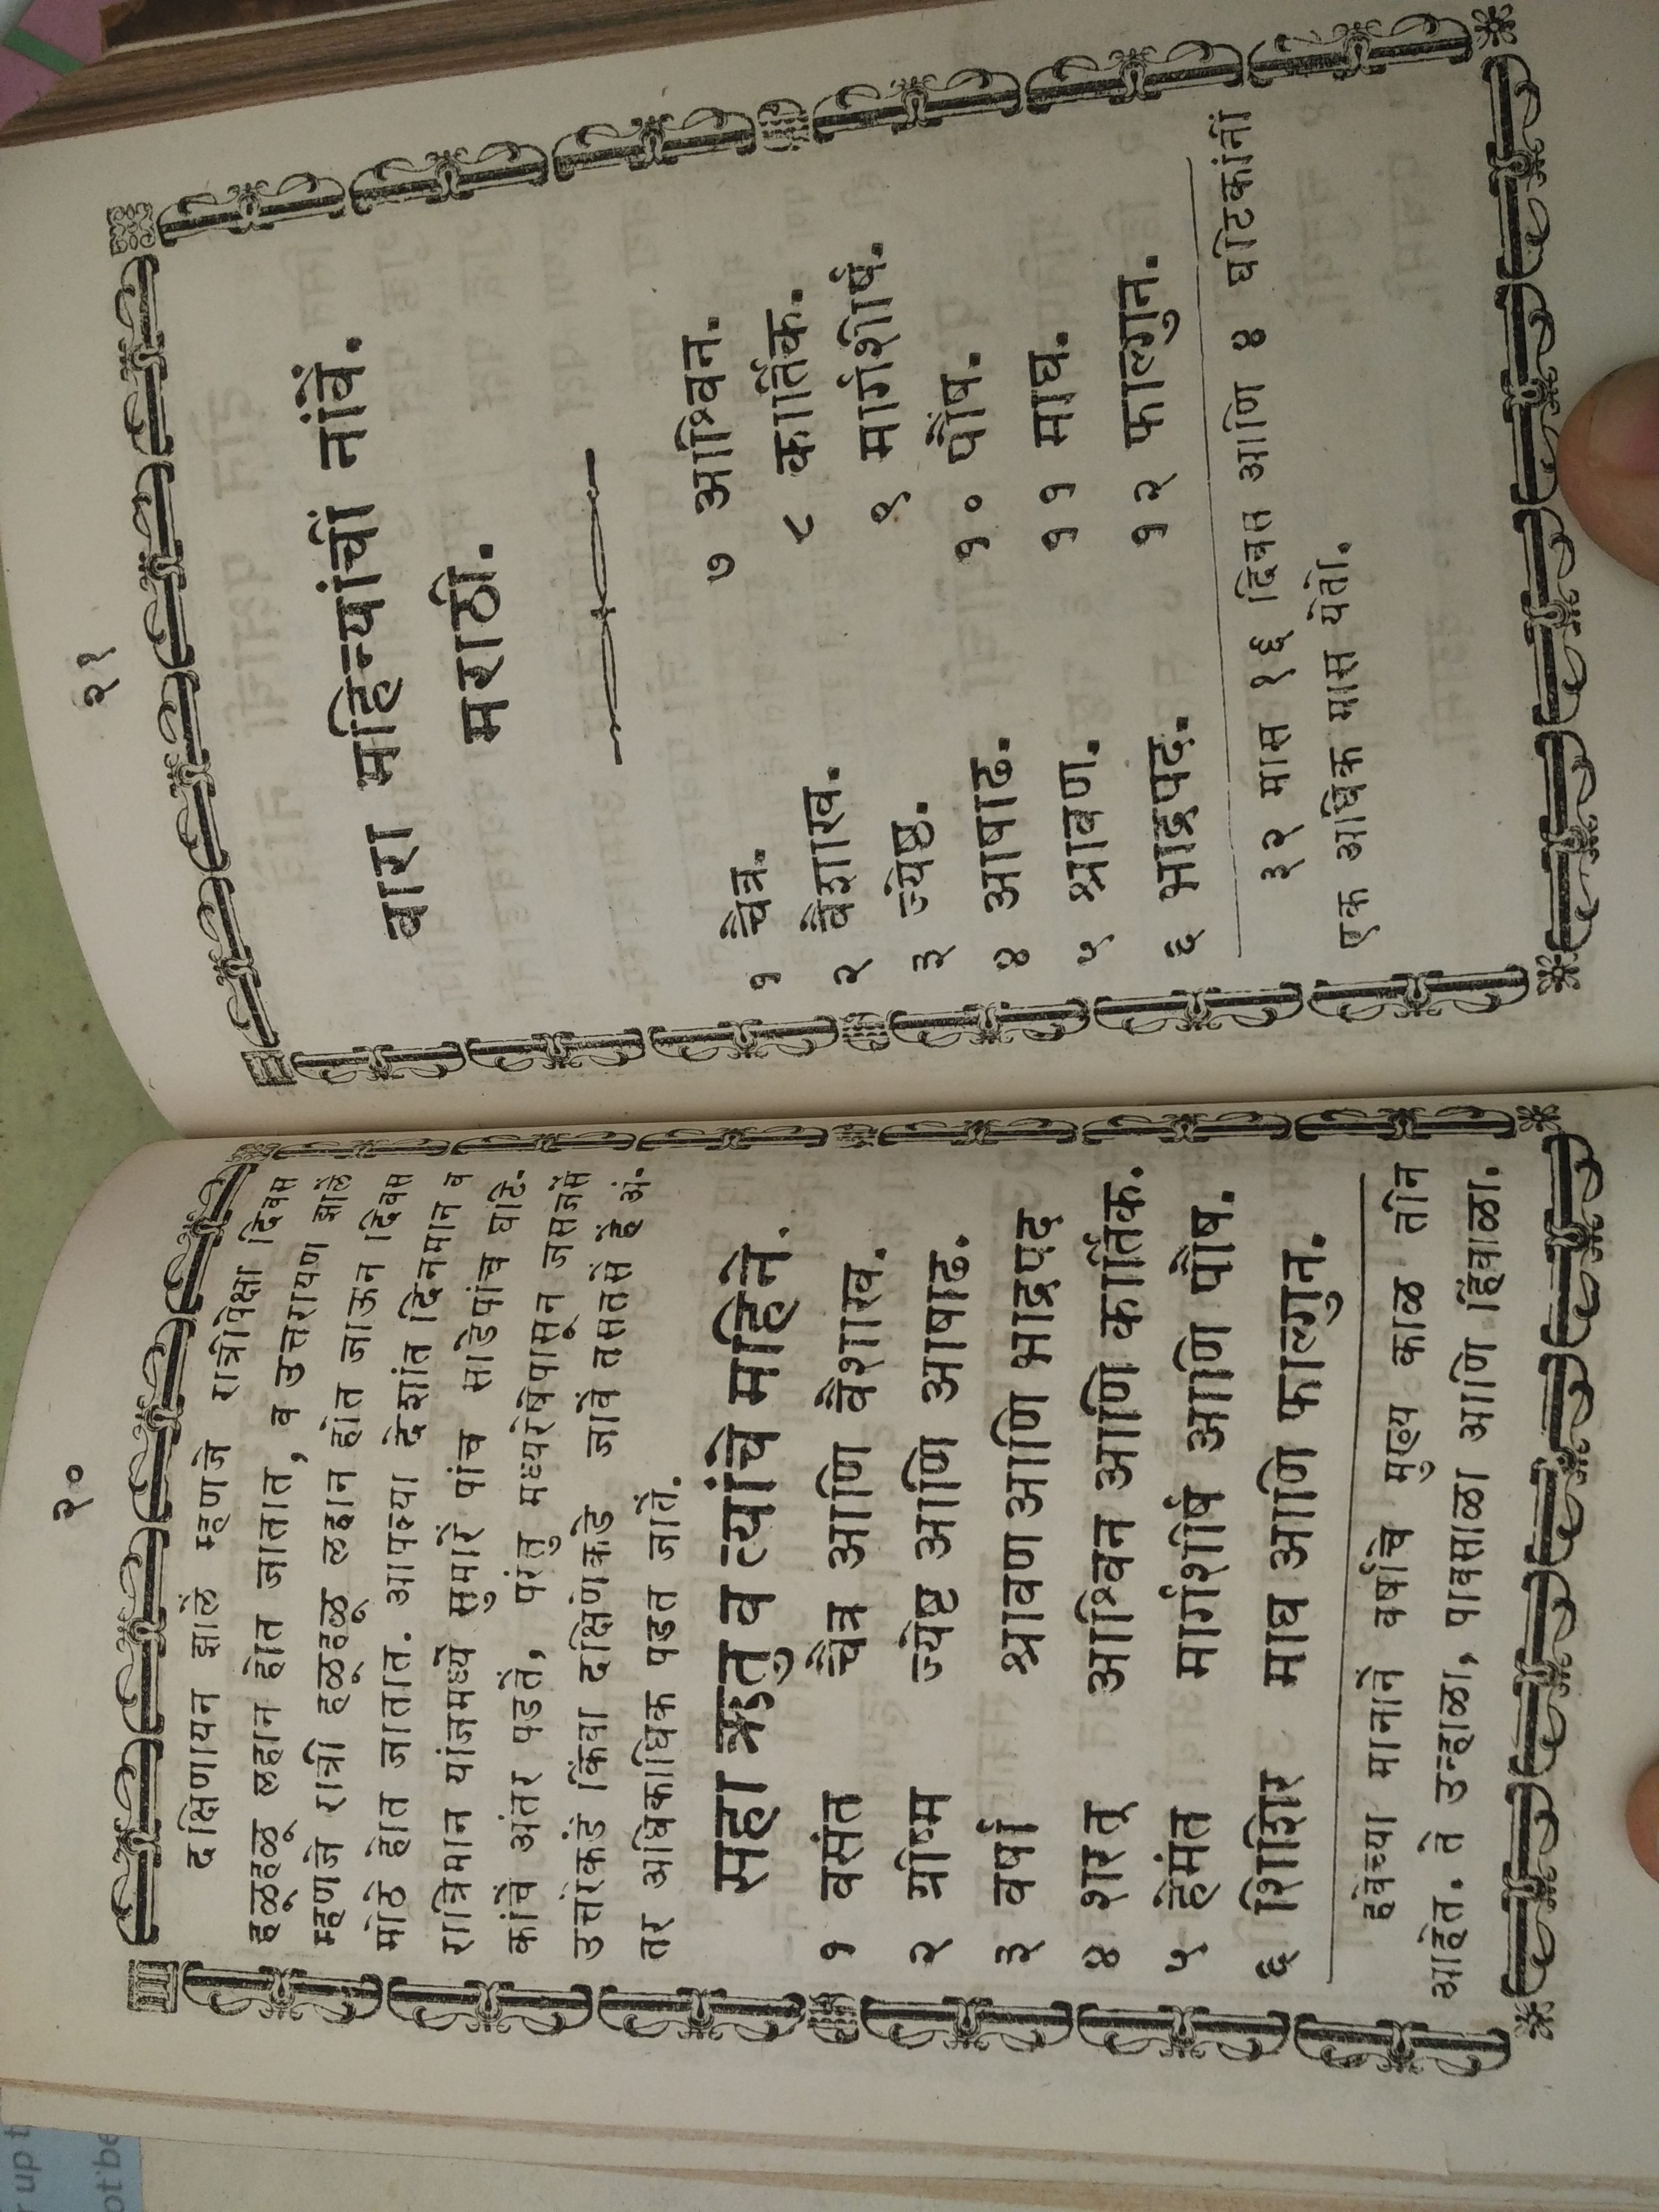 २०
दक्षिणायन झालें म्हणजे रात्रीपेक्षा दिवस
हळूहळू लहान होत जातात, व उत्तरायण झालें
म्हणजे रात्री हळूहळू लहान होत जाऊन दिवस
मोठे होत जातात. आपल्या देशांत दिनमान व
रात्रिमान यांजमध्यें सुमारें पांच साडेपांच घटि-
कांचें अंतर पडतें, परंतु मध्यरेषेपासून जसजसें
उत्तरेकडे किंवा दक्षिणेकडे जावें तसतसें हें अं-
तर अधिकाधिक पडत जातें.
सहा ऋतु व त्यांचे महिने.
१ वसंत चैत्र आणि वैशाख.
२ ग्रीष्म ज्येष्ठ आणि आषाढ.
३ वर्षा श्रावण आणि भाद्रपद
४ शरत् आश्विन आणि कार्तिक.
५ हेमंत मार्गशीर्ष आणि पौष.
६ शिशिर माघ आणि फाल्गुन.
हवेच्या मानानें वर्षाचे मुख्य काळ तीन
आहेत. ते उन्हाळा, पावसाळा आणि हिंवाळा.
२१
बारा महिन्यांचीं नांवें.
मराठी.
१ चैत्र.
२ वैशाख.
३ ज्येष्ठ.
४ आषाढ.
५ श्रावण.
६ भाद्रपद.
७ आश्विन.
८ कार्तिक.
९ मार्गशीर्ष.
१० पौष.
११ माघ.
१२ फाल्गुन.
३२ मास १६ दिवस आणि ४ घटिकांनीं
एक अधिक मास येतो.
up t
ot be